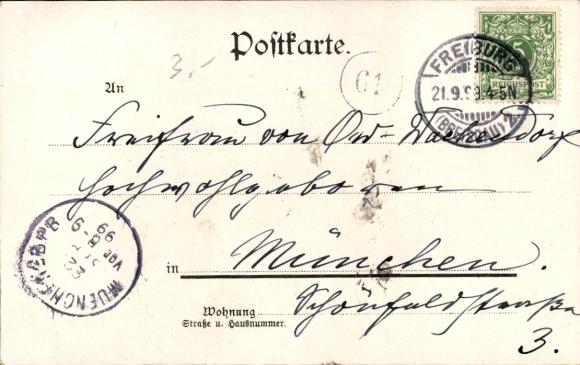 Postkarte.
3.-
61
5
REICHSPOST
FREIBURG
21.9.99.4-5N
(BREISGAU) 2
An
Freifrau von Ow-Wachendorf
Hochwohlgeboren
in München.
Wohnung
Straße u. Hausnummer.
Schönfeldstraße
3.
MUENCHEN
VOR
99